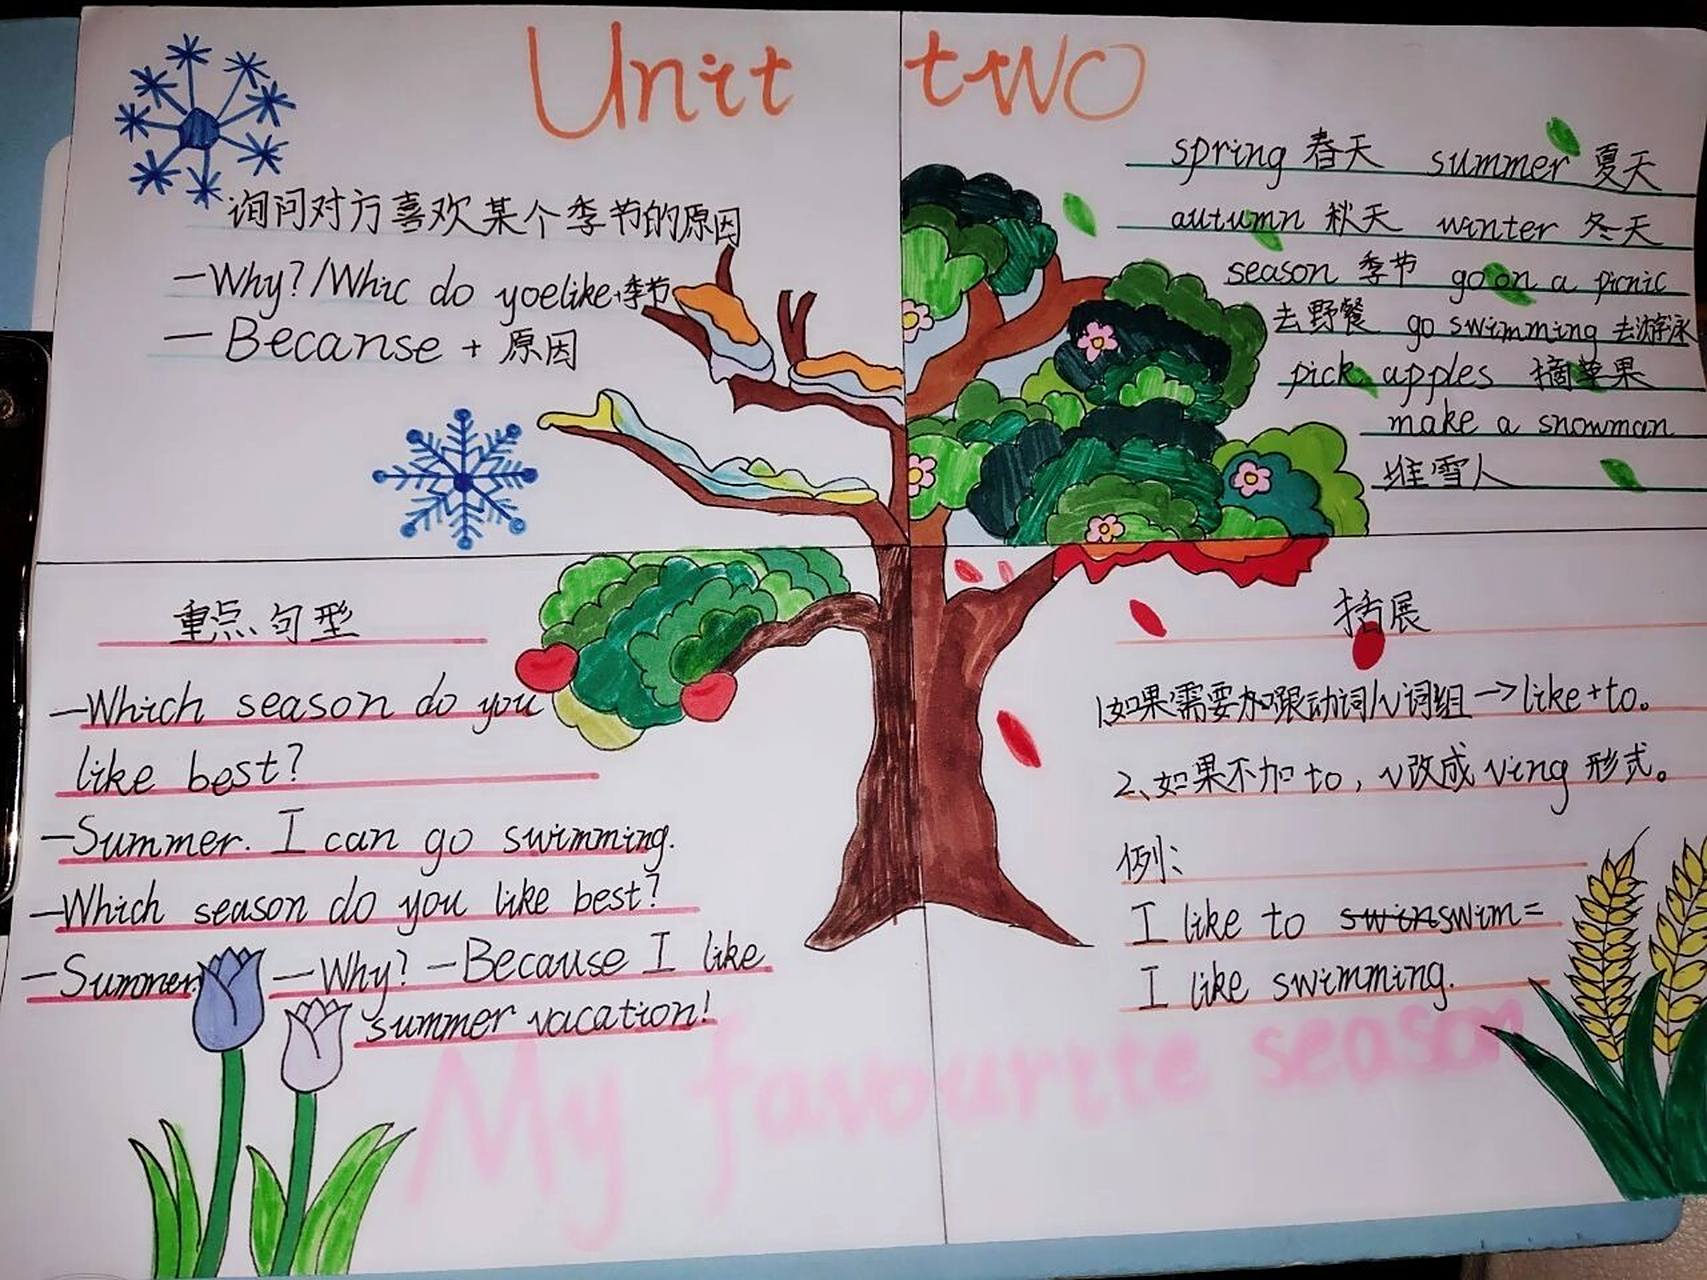 Unit two
询问对方喜欢某个季节的原因
—Why?/Whic do yoelike+季节
— Becanse + 原因
spring 春天 summer 夏天
autumn 秋天 winter 冬天
season 季节 go on a picnic
去野餐 go swimming 去游泳
pick apples 摘苹果
make a snowman
堆雪人
重点句型
—Which season do you
like best?
—Summer. I can go swimming.
—Which season do you like best?
—Summer. —Why? —Because I like
summer vacation!
拓展
1.如果需要加跟动词/v词组→like+to。
2、如果不加to，v改成ving形式。
例：
I like to swin swim=
I like swimming.
My favourite season